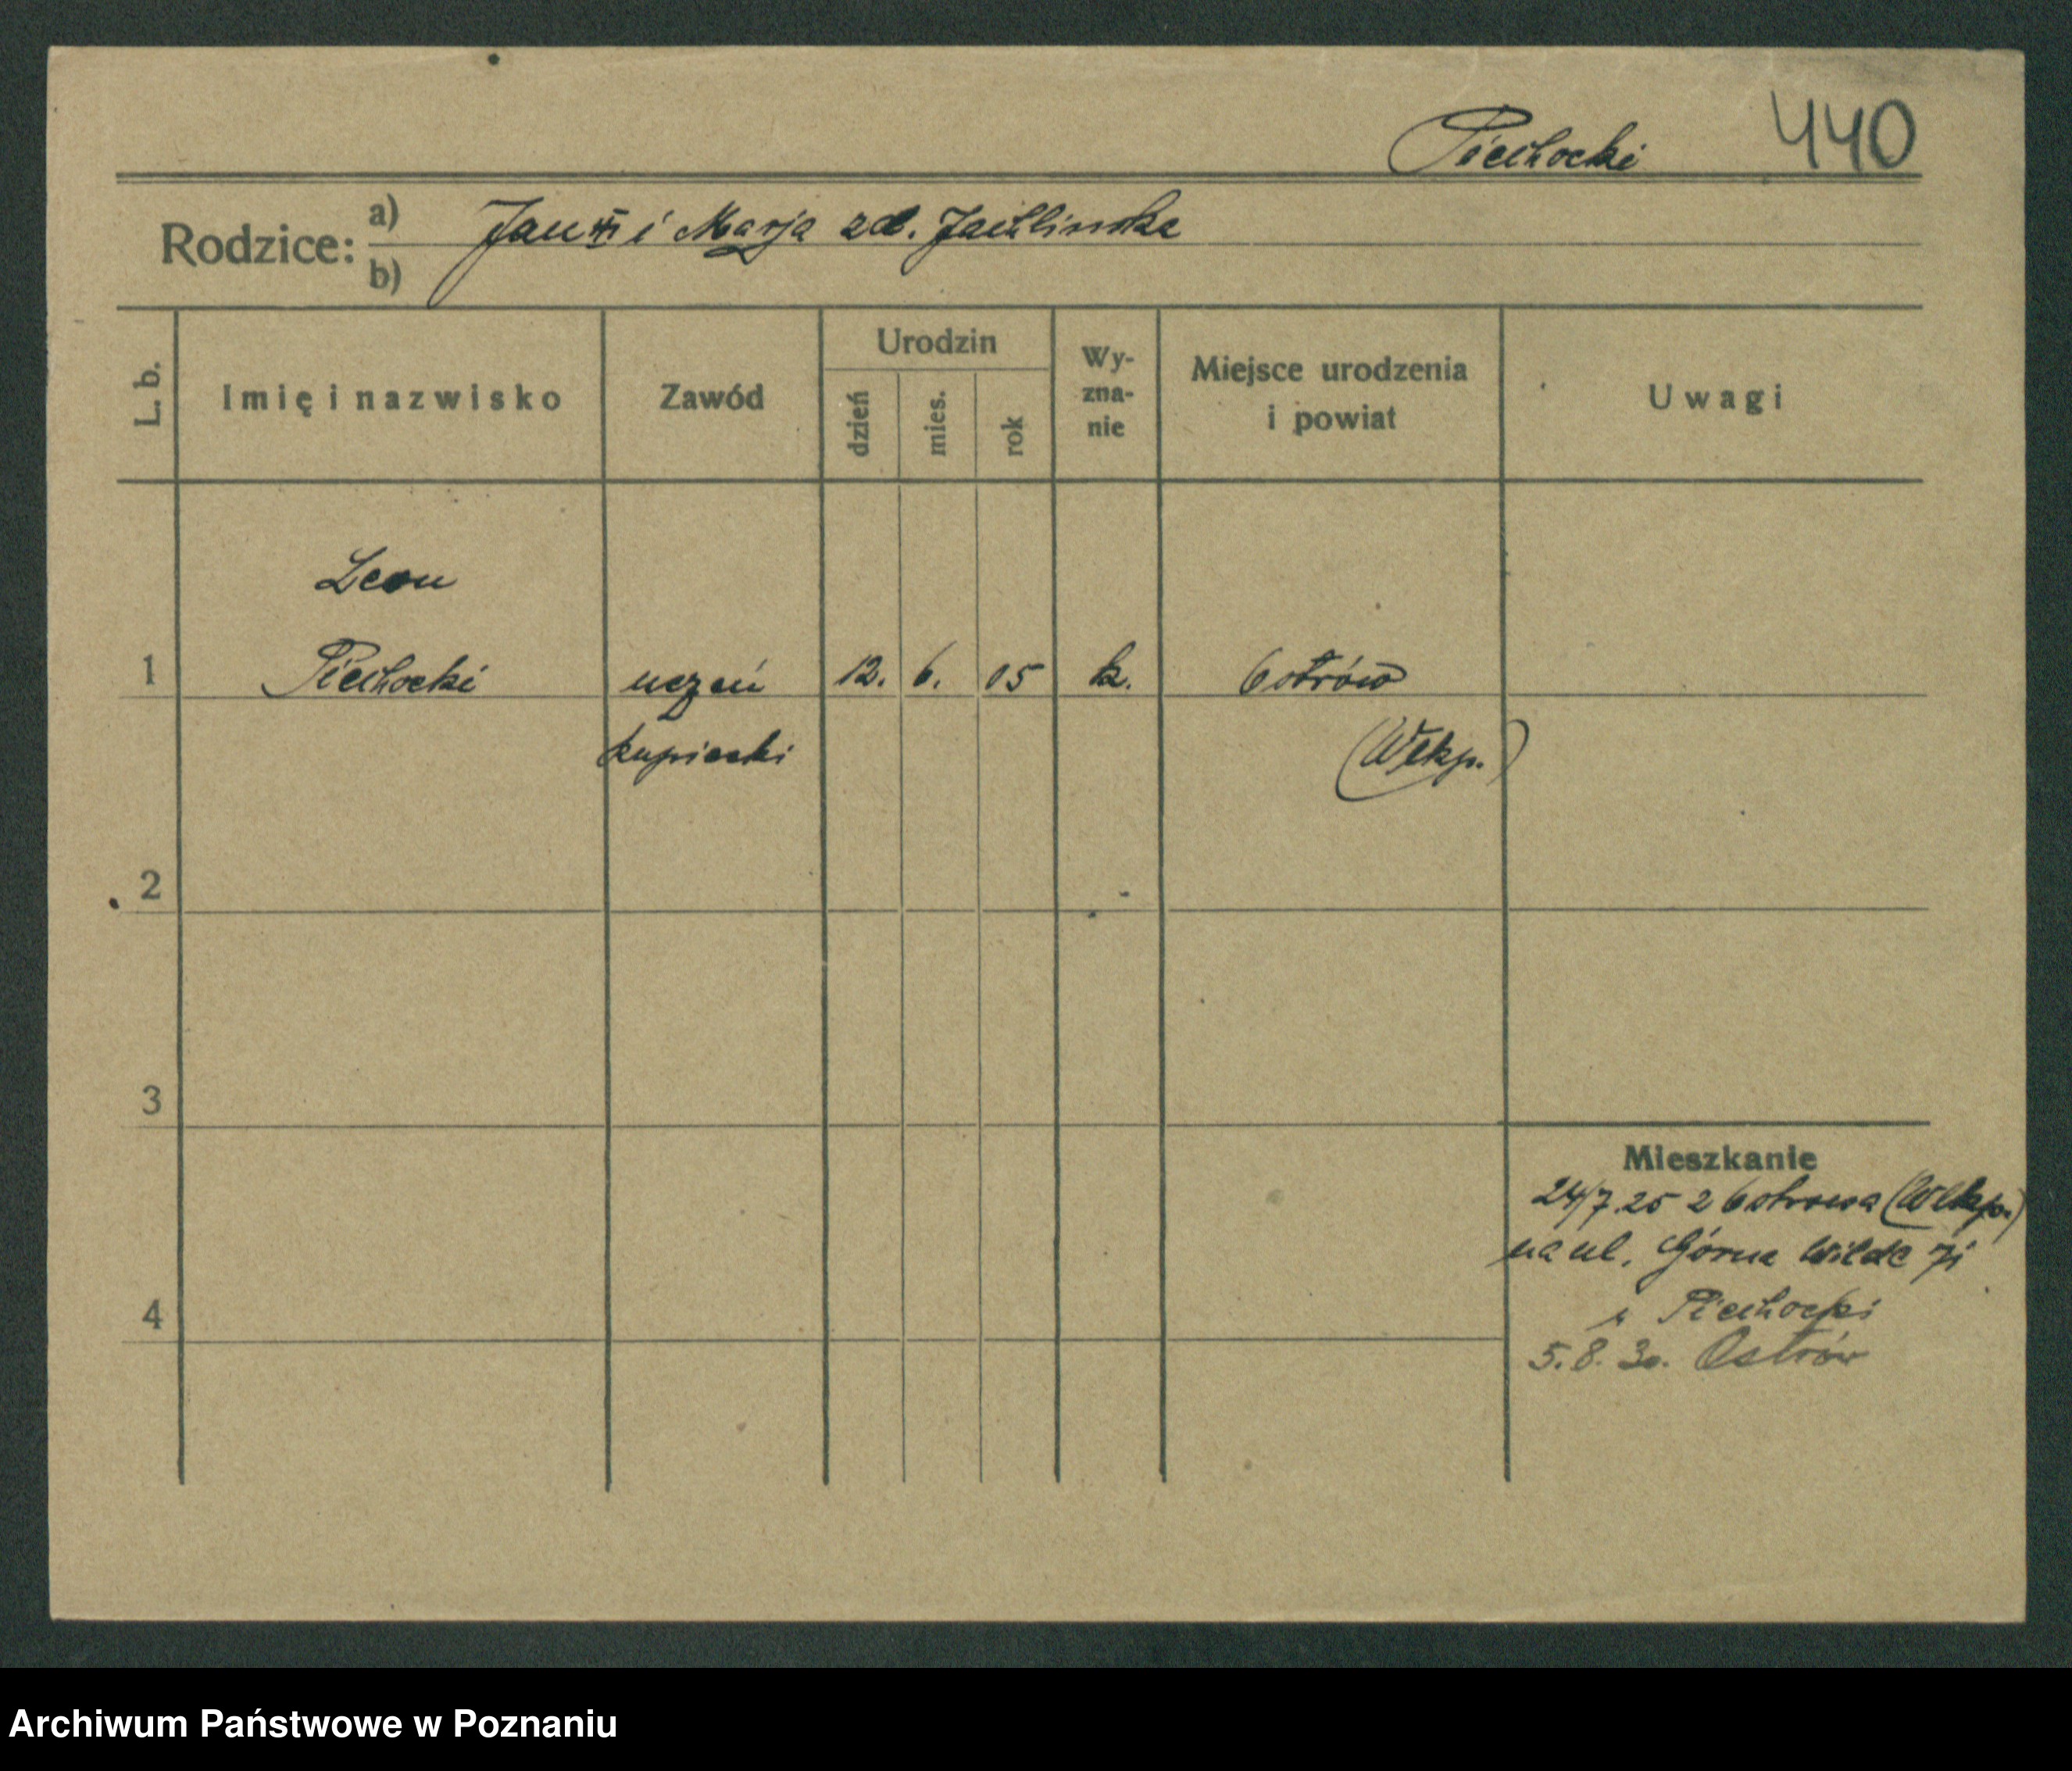 Piechocki 440
Rodzice: a) Jan i Marja zd. Jachlinska
b)
L. b. Imię i nazwisko Zawód Urodzin dzień mies. rok Wy-zna-nie Miejsce urodzenia i powiat Uwagi
Leon
1 Piechocki uczeń 12. 6. 05 k. Ostrów
kupiecki (Wlkp.)
2
3
Mieszkanie
24/7.25 z Ostrowa (Wlkp.)
na ul. Górna Wilda
Piechocki
4
5.8.30. Ostrów
Archiwum Państwowe w Poznaniu